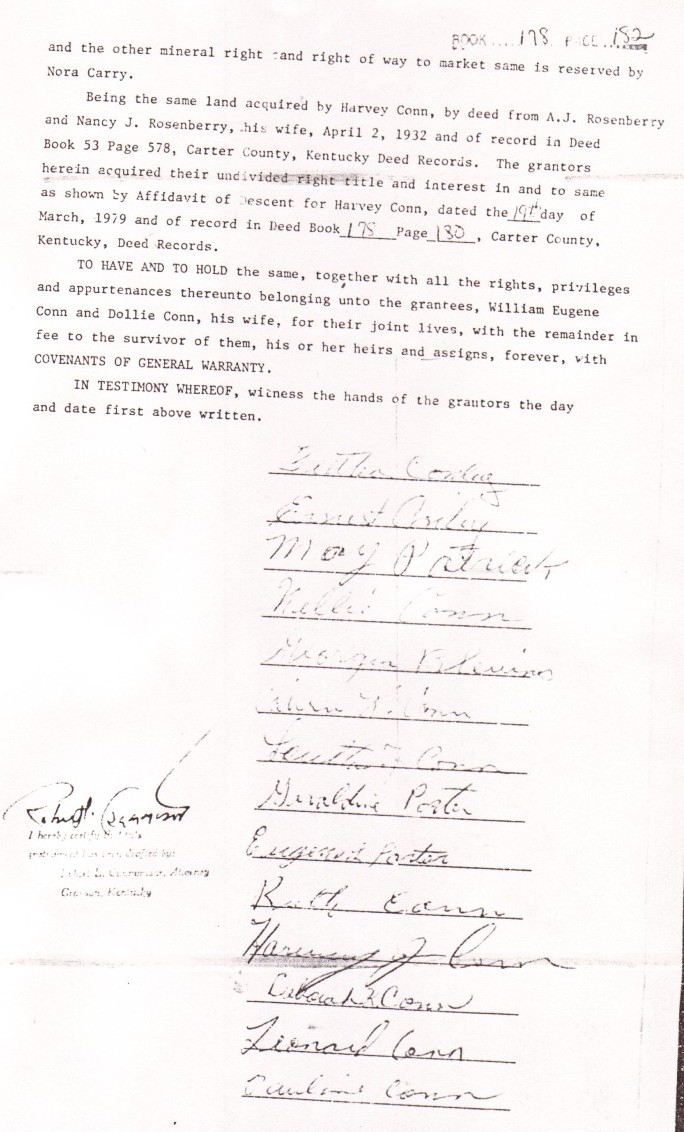 BOOK....178. PAGE...182
and the other mineral right and right of way to market same is reserved by
Nora Carry.
Being the same land acquired by Harvey Conn, by deed from A.J. Rosenberry
and Nancy J. Rosenberry, his wife, April 2, 1932 and of record in Deed
Book 53 Page 578, Carter County, Kentucky Deed Records. The grantors
herein acquired their undivided right title and interest in and to same
as shown by Affidavit of Descent for Harvey Conn, dated the 19th day of
March, 1979 and of record in Deed Book 178 Page 180, Carter County,
Kentucky, Deed Records.
TO HAVE AND TO HOLD the same, together with all the rights, privileges
and appurtenances thereunto belonging unto the grantees, William Eugene
Conn and Dollie Conn, his wife, for their joint lives, with the remainder in
fee to the survivor of them, his or her heirs and assigns, forever, with
COVENANTS OF GENERAL WARRANTY.
IN TESTIMONY WHEREOF, witness the hands of the grantors the day
and date first above written.
Bertha
Ernest
May Patrick
Nellie Conn
Georgia Blevins
Conn
Conn
Geraldine Porter
Eugene Porter
Robert
I hereby certify
instrument has been drafted by:
Robert L. Attorney
Grayson, Kentucky
Ruth Conn
Harvey J Conn
Deborah K Conn
Leonard Conn
Pauline Conn